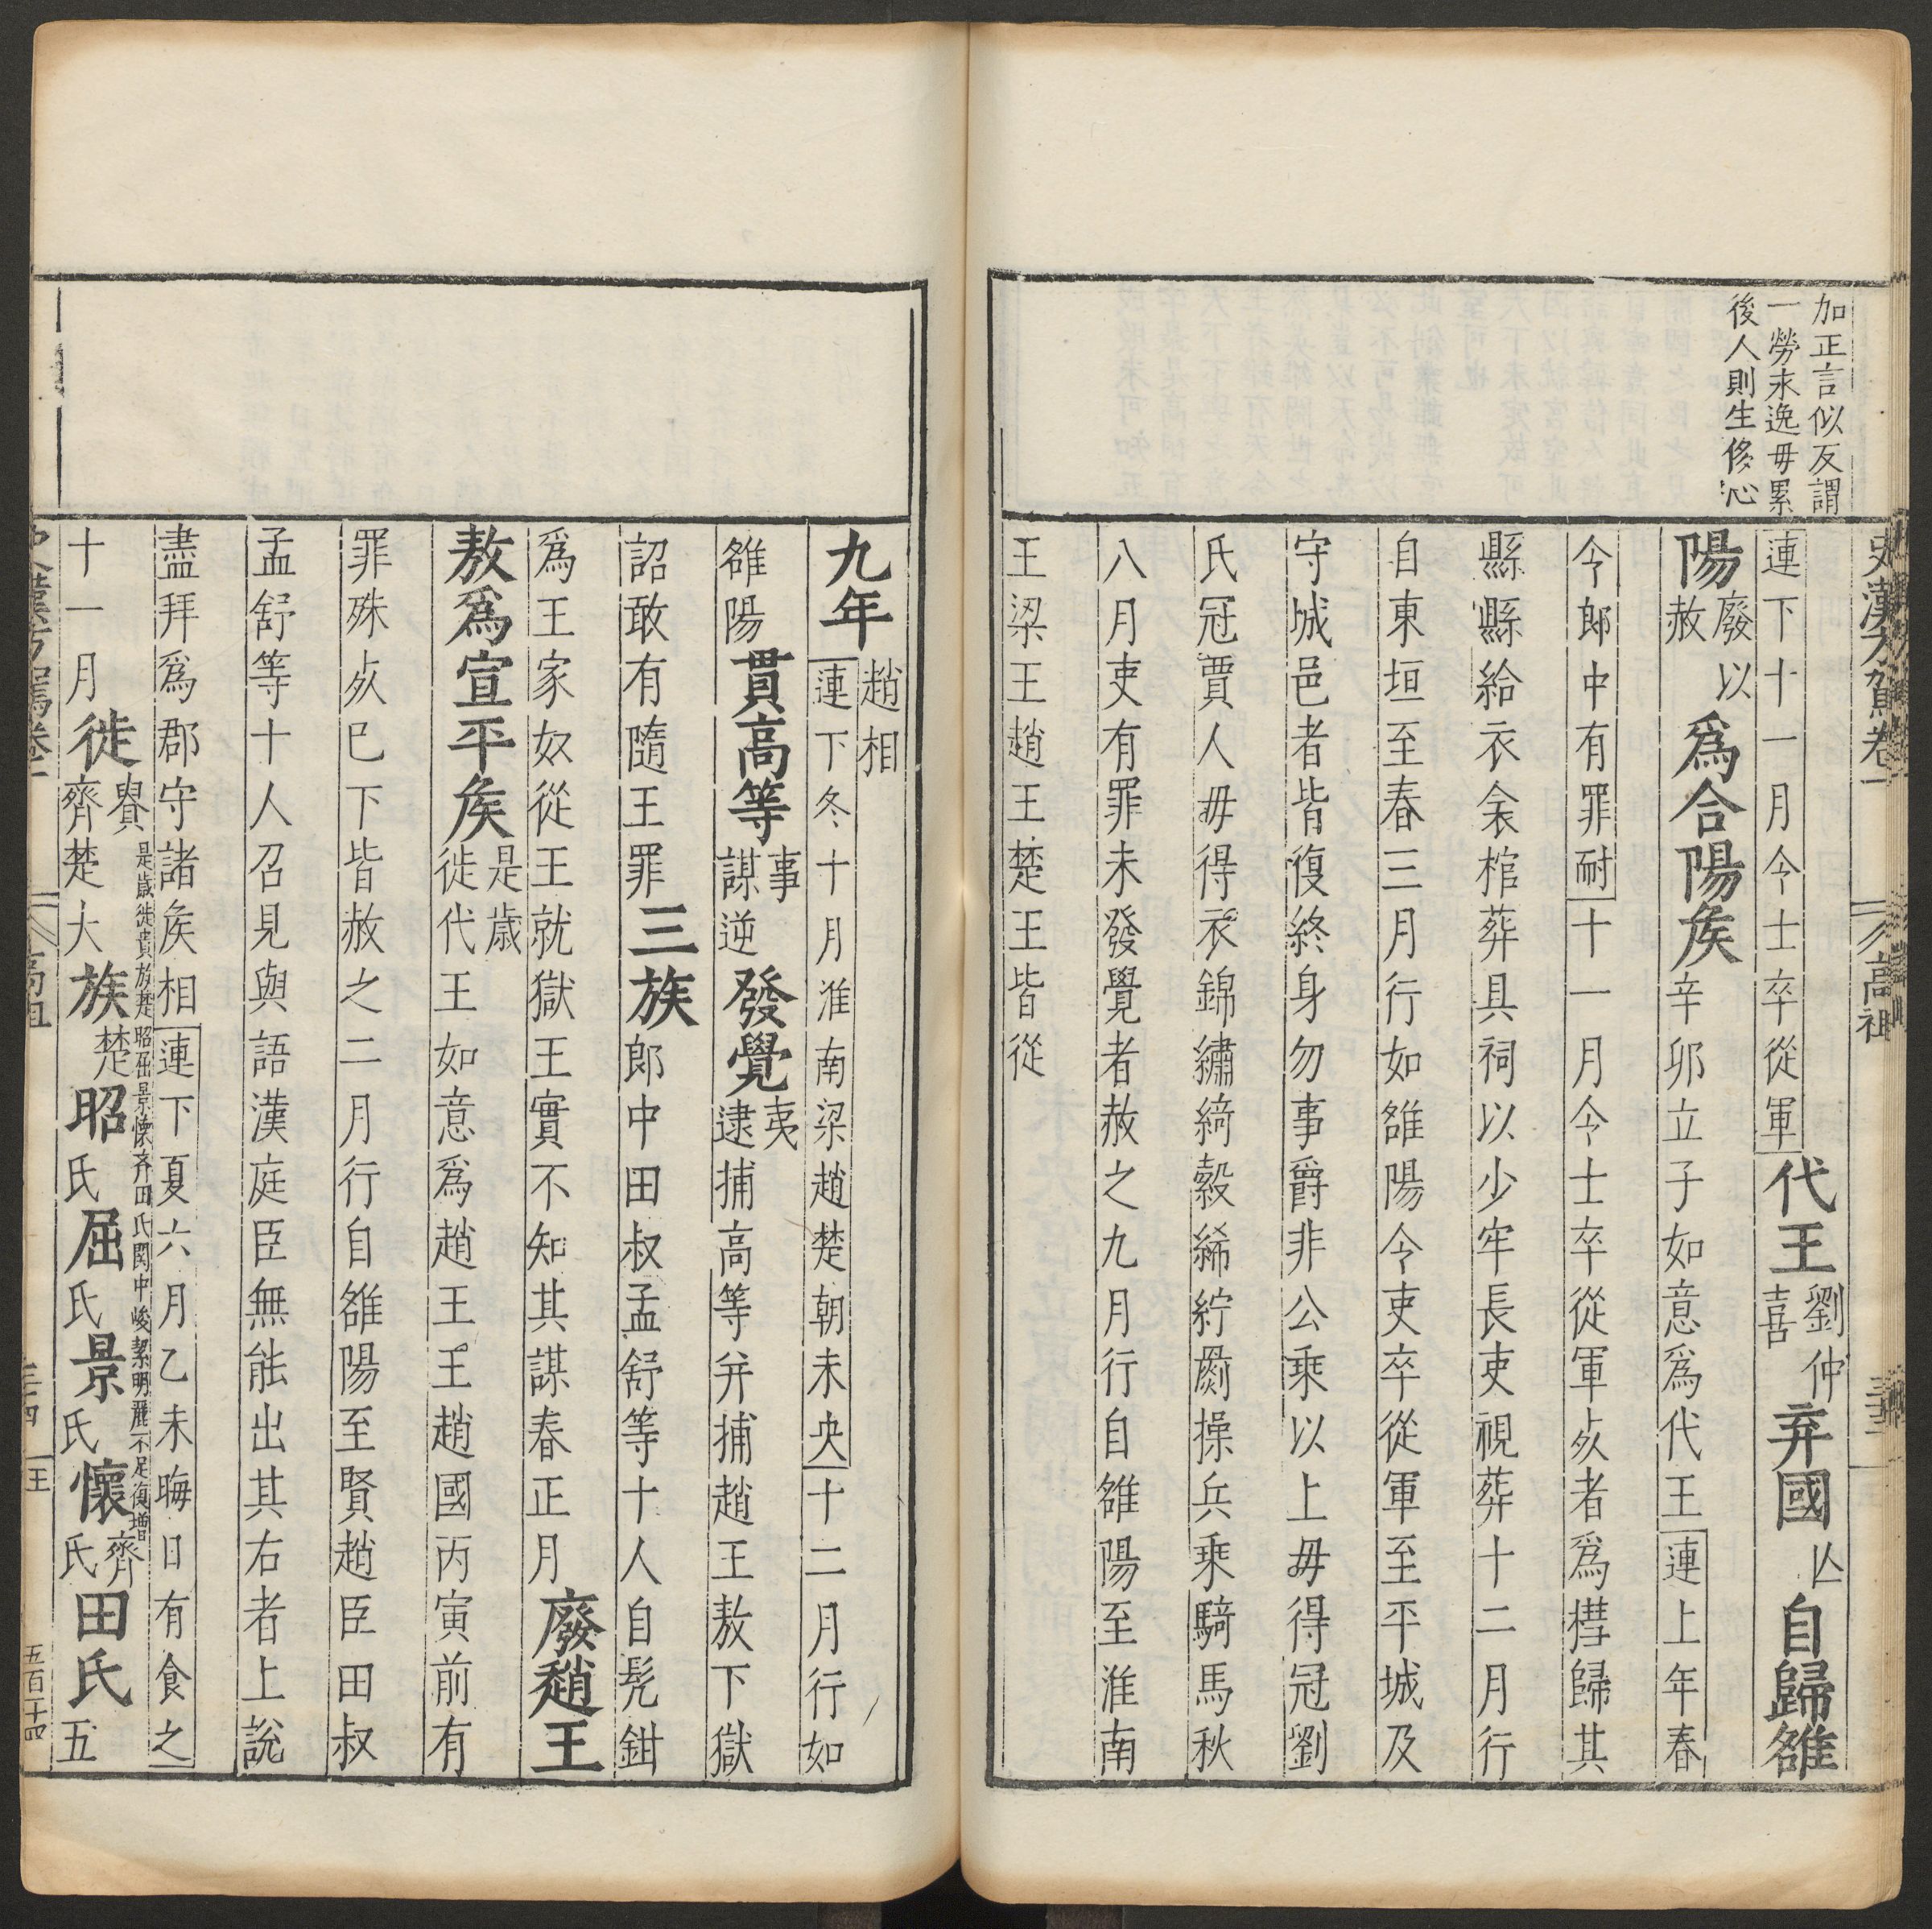 史漢方駕卷二
高祖
三十三
加正言似反謂
一勞永逸毋累
後人則生侈心
連下十一月令士卒從軍代王劉仲喜弃國亾自歸雒
陽廢以赦爲合陽矦辛卯立子如意爲代王連上年春
令郎中有罪耐十一月令士卒從軍死者爲槥歸其
縣縣給衣衾棺葬具祠以少牢長吏視葬十二月行
自東垣至春三月行如雒陽令吏卒從軍至平城及
守城邑者皆復終身勿事爵非公乘以上毋得冠劉
氏冠賈人毋得衣錦繡綺縠絺紵罽操兵乘騎馬秋
八月吏有罪未發覺者赦之九月行自雒陽至淮南
王梁王趙王楚王皆從
九年趙相連下冬十月淮南梁趙楚朝未央十二月行如
雒陽貫高等事謀逆發覺夷逮捕高等并捕趙王敖下獄
詔敢有隨王罪三族郎中田叔孟舒等十人自髡鉗
爲王家奴從王就獄王實不知其謀春正月廢趙王
敖爲宣平矦是歲徙代王如意爲趙王王趙國丙寅前有
罪殊死已下皆赦之二月行自雒陽至賢趙臣田叔
孟舒等十人召見與語漢庭臣無能出其右者上說
盡拜爲郡守諸矦相連下夏六月乙未晦日有食之
是歲徙貴族楚昭屈景懷齊田氏関中峻絜明麗不足復增
十一月徙貴齊楚大族楚昭氏屈氏景氏懷氏齊田氏五
史漢方駕卷二
高祖
三十四
王
五百十四